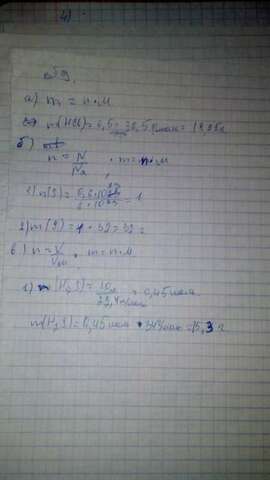 4)
№9.
а) m = n · M
m(HCl) = 0,5 · 36,5 г/моль = 18,25г
б)
n = N/Nₐ, m = n · M
1) n(S) = 6 · 10²³ = 1
2) m(S) = 1 · 32 = 32 г
в) n = V/Vm, m = n · M
1) n(H₂S) = 10л/22,4л/моль = 0,45 моль
m(H₂S) = 0,45 моль · 34г/моль = 15,3 г